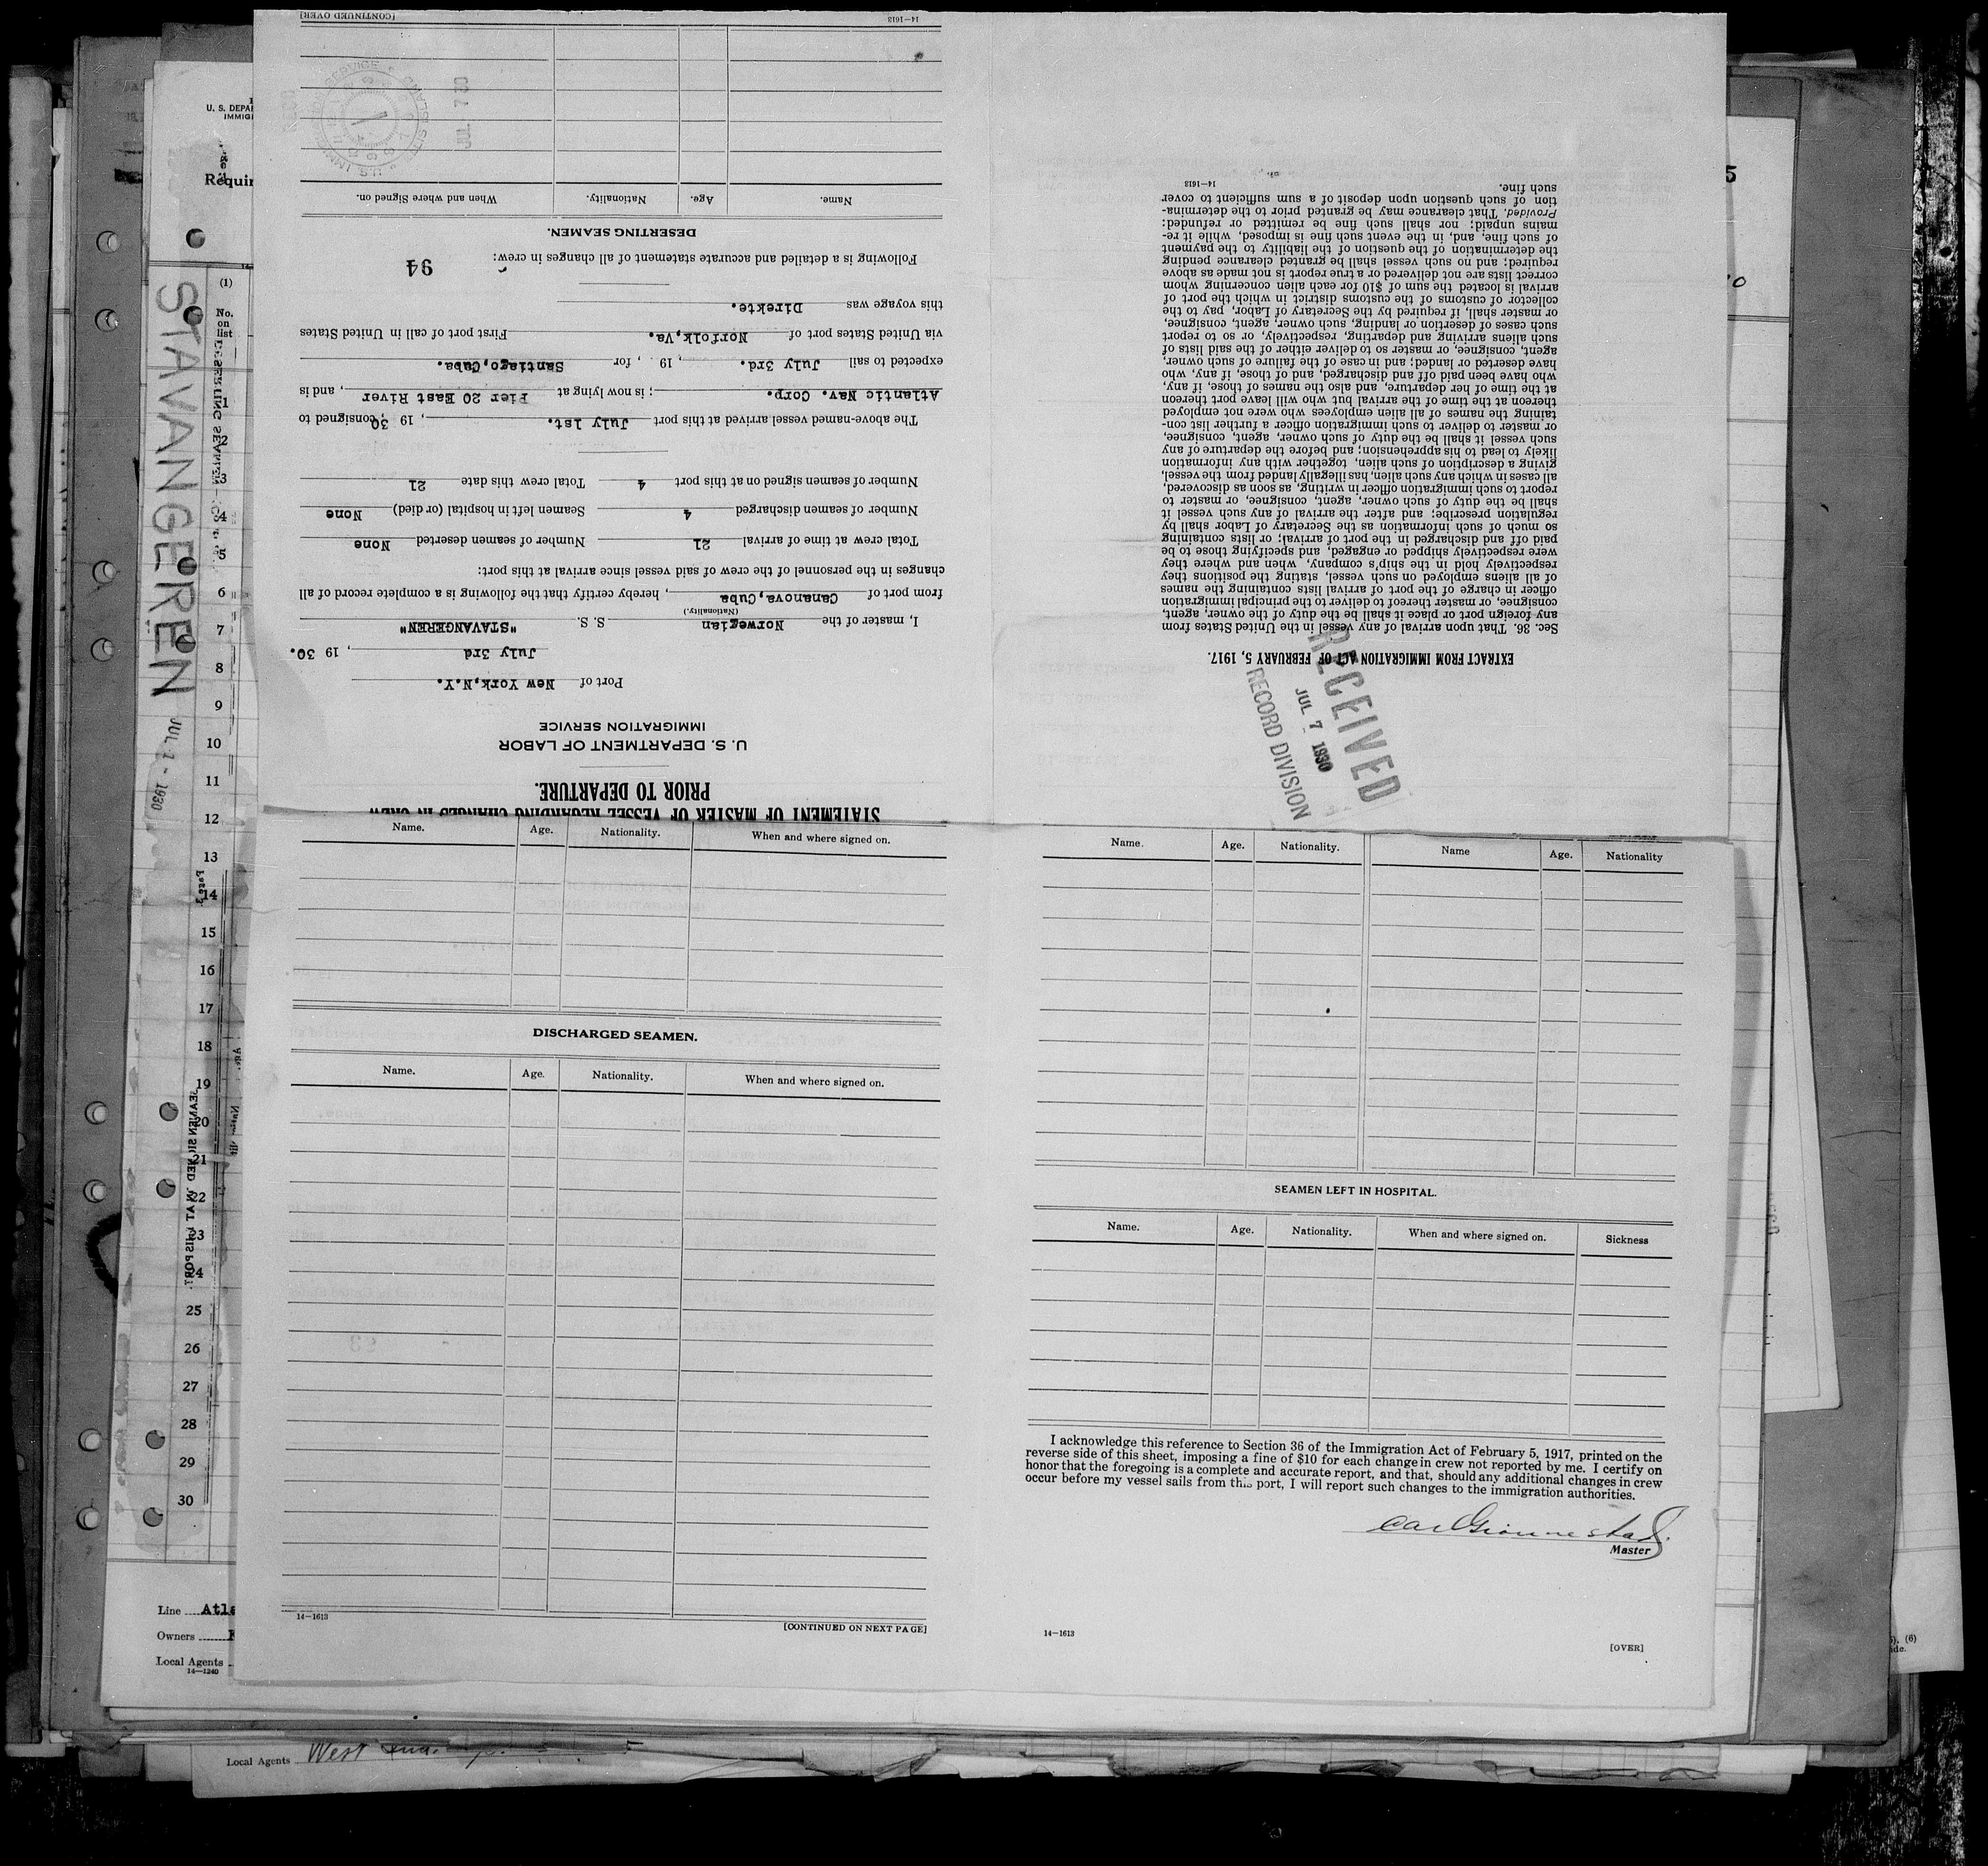 STATEMENT OF MASTER OF VESSEL REGARDING CHANGES IN CREW
PRIOR TO DEPARTURE.
U. S. DEPARTMENT OF LABOR
IMMIGRATION SERVICE
Port of New York, N.Y.
July 3rd, 19 30.
I, master of the Norwegian S. S. "STAVANGEREN"
(Nationality.)
from port of Cananova, Cuba, hereby certify that the following is a complete record of all
changes in the personnel of the crew of said vessel since arrival at this port:
Total crew at time of arrival 21 Number of seamen deserted None
Number of seamen discharged 4 Seamen left in hospital (or died) None
Number of seamen signed on at this port 4 Total crew this date 21
The above-named vessel arrived at this port July 1st., 19 30, consigned to
Atlantic Nav. Corp.; is now lying at Pier 20 East River, and is
expected to sail July 3rd., 19 , for Santiago, Cuba.
via United States port of Norfolk, Va. First port of call in United States
this voyage was Direkte.
Following is a detailed and accurate statement of all changes in crew:
94
DESERTING SEAMEN.
Name. Age. Nationality. When and where Signed on.
14—1613 [CONTINUED OVER]
JUL 7 30
EXTRACT FROM IMMIGRATION ACT OF FEBRUARY 5, 1917.
Sec. 36. That upon arrival of any vessel in the United States from
any foreign port or place it shall be the duty of the owner, agent,
consignee, or master thereof to deliver to the principal immigration
officer in charge of the port of arrival lists containing the names
of all aliens employed on such vessel, stating the positions they
respectively hold in the ship's company, when and where they
were respectively shipped or engaged, and specifying those to be
paid off and discharged in the port of arrival; or lists containing
so much of such information as the Secretary of Labor shall by
regulation prescribe; and after the arrival of any such vessel it
shall be the duty of such owner, agent, consignee, or master to
report to such immigration officer in writing, as soon as discovered,
all cases in which any such alien has illegally landed from the vessel,
giving a description of such alien, together with any information
likely to lead to his apprehension; and before the departure of any
such vessel it shall be the duty of such owner, agent, consignee,
or master to deliver to such immigration officer a further list con-
taining the names of all alien employees who were not employed
thereon at the time of the arrival but who will leave port thereon
at the time of her departure, and also the names of those, if any,
who have been paid off and discharged, and of those, if any, who
have deserted or landed; and in case of the failure of such owner,
agent, consignee, or master so to deliver either of the said lists of
such aliens arriving and departing, respectively, or so to report
such cases of desertion or landing, such owner, agent, consignee,
or master, shall, if required by the Secretary of Labor, pay to the
collector of customs of the customs district in which the port of
arrival is located the sum of $10 for each alien concerning whom
correct lists are not delivered or a true report is not made as above
required; and no such vessel shall be granted clearance pending
the determination of the question of the liability to the payment
of such fine, and, in the event such fine is imposed, while it re-
mains unpaid; nor shall such fine be remitted or refunded:
Provided, That clearance may be granted prior to the determina-
tion of such question upon deposit of a sum sufficient to cover
such fine.
14—1613
RECEIVED
JUL 7 1930
RECORD DIVISION
Name. Age. Nationality. When and where signed on.
DISCHARGED SEAMEN.
Name. Age. Nationality. When and where signed on.
14—1613
[CONTINUED ON NEXT PAGE]
Name. Age. Nationality. Name Age. Nationality
SEAMEN LEFT IN HOSPITAL.
Name. Age. Nationality. When and where signed on. Sickness
I acknowledge this reference to Section 36 of the Immigration Act of February 5, 1917, printed on the
reverse side of this sheet, imposing a fine of $10 for each change in crew not reported by me. I certify on
honor that the foregoing is a complete and accurate report, and that, should any additional changes in crew
occur before my vessel sails from this port, I will report such changes to the immigration authorities.
Master
14—1613
[OVER]
U. S. DEPA
IMMIG
Requir
(1)
No.
on
list
1
2
3
4
5
6
7
8
9
10
11
12
13
14
15
16
17
18
19
20
21
22
23
24
25
26
27
28
29
30
STAVANGEREN
JUL 1 - 1930
SEAMEN SIGNED ON AT THIS PORT.
Line Atla
Owners
Local Agents
14—1240
Local Agents West
5
(6)